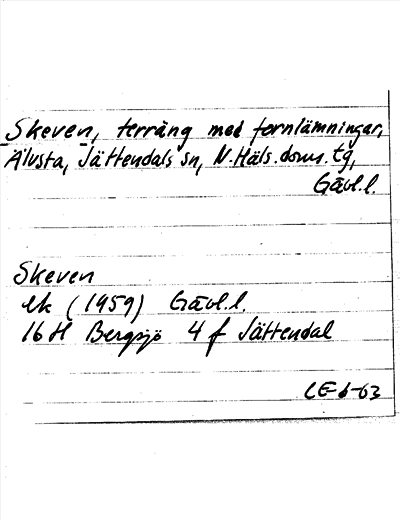 Skeven, terräng med fornlämningar,
Älvsta, Jättendals sn, N.Häls.doms.tg,
Gävl.l.
Skeven
ek (1959) Gävl.l.
16 H Bergsjö 4 f Jättendal
CE-6-63